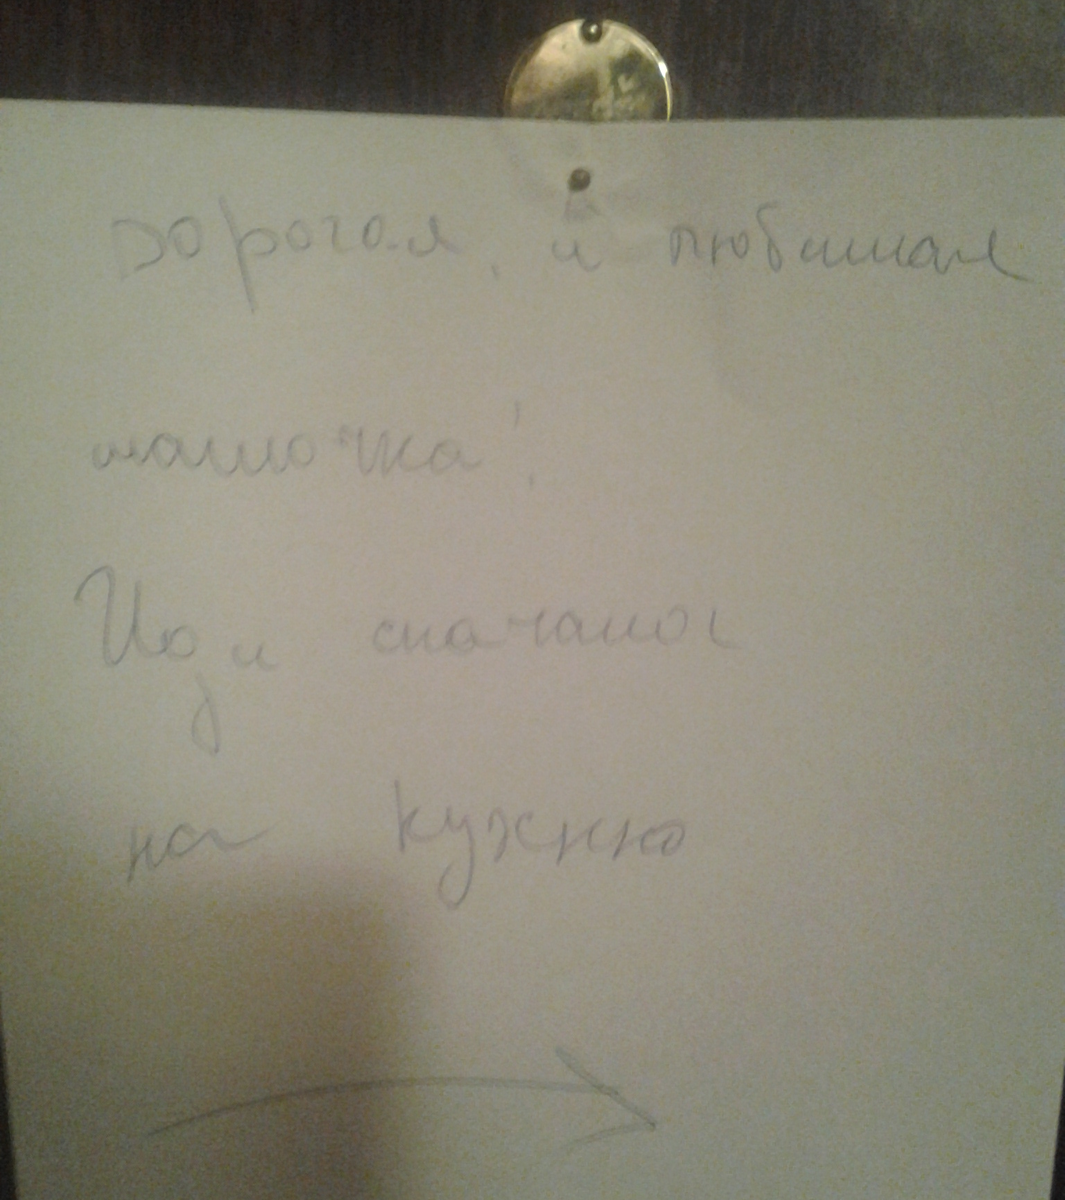 дорогая, и любимая
мамочка!
Иди сначала
на кухню